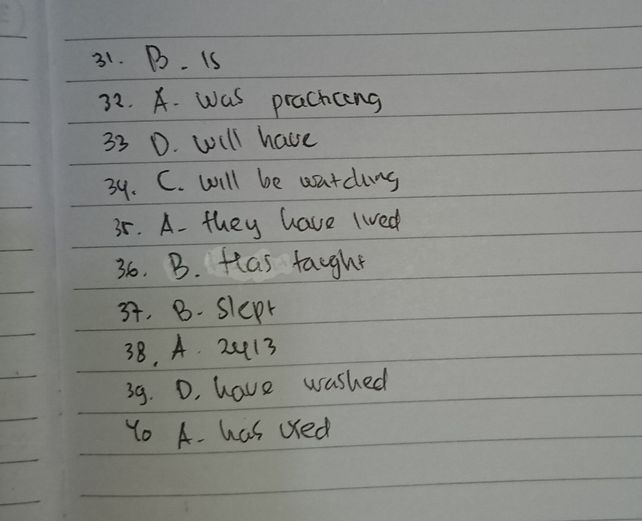 31. B. Is
32. A. Was practicing
33 D. Will have
34. C. Will be watching
35. A- they have lived
36. B. Has taught
37. B- Slept
38. A. 2413
39. D. have washed
40 A- has used